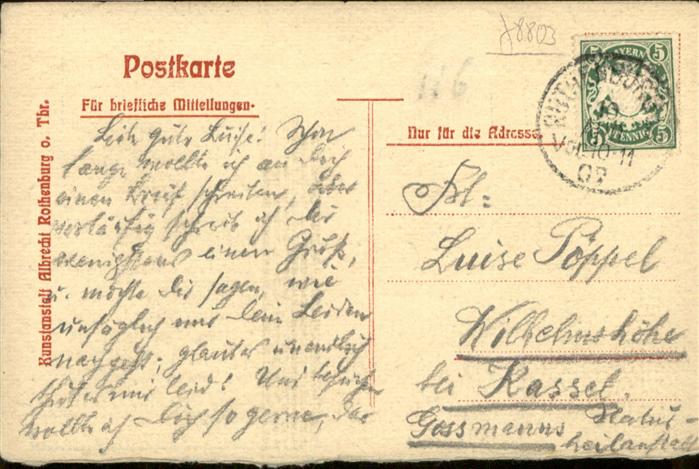 Postkarte
Für briefliche Mitteilungen.
Kunstanstalt Albrecht Rothenburg o. Tbr.
Lieb gute Luise! Schon
lange wollte ich an Dich
einen Brief schreiben, aber
vorläufig schreib ich Dir
wenigstens einen Gruß,
u. möchte Dir sagen, wie
unsäglich uns Dein Leiden
nahgeht; glaube unendlich
thut es mir leid! Und besuchen
wollte ich Dich so gerne, der
Nur für die Adresse.
Frl:
Luise Pöppel
Wilhelmshöhe
bei Kassel.
Gossmanns Natur-
heilanstalt
78803
BAYERN
5 5
5 PFENNIG 5
19
Vor. 10-11